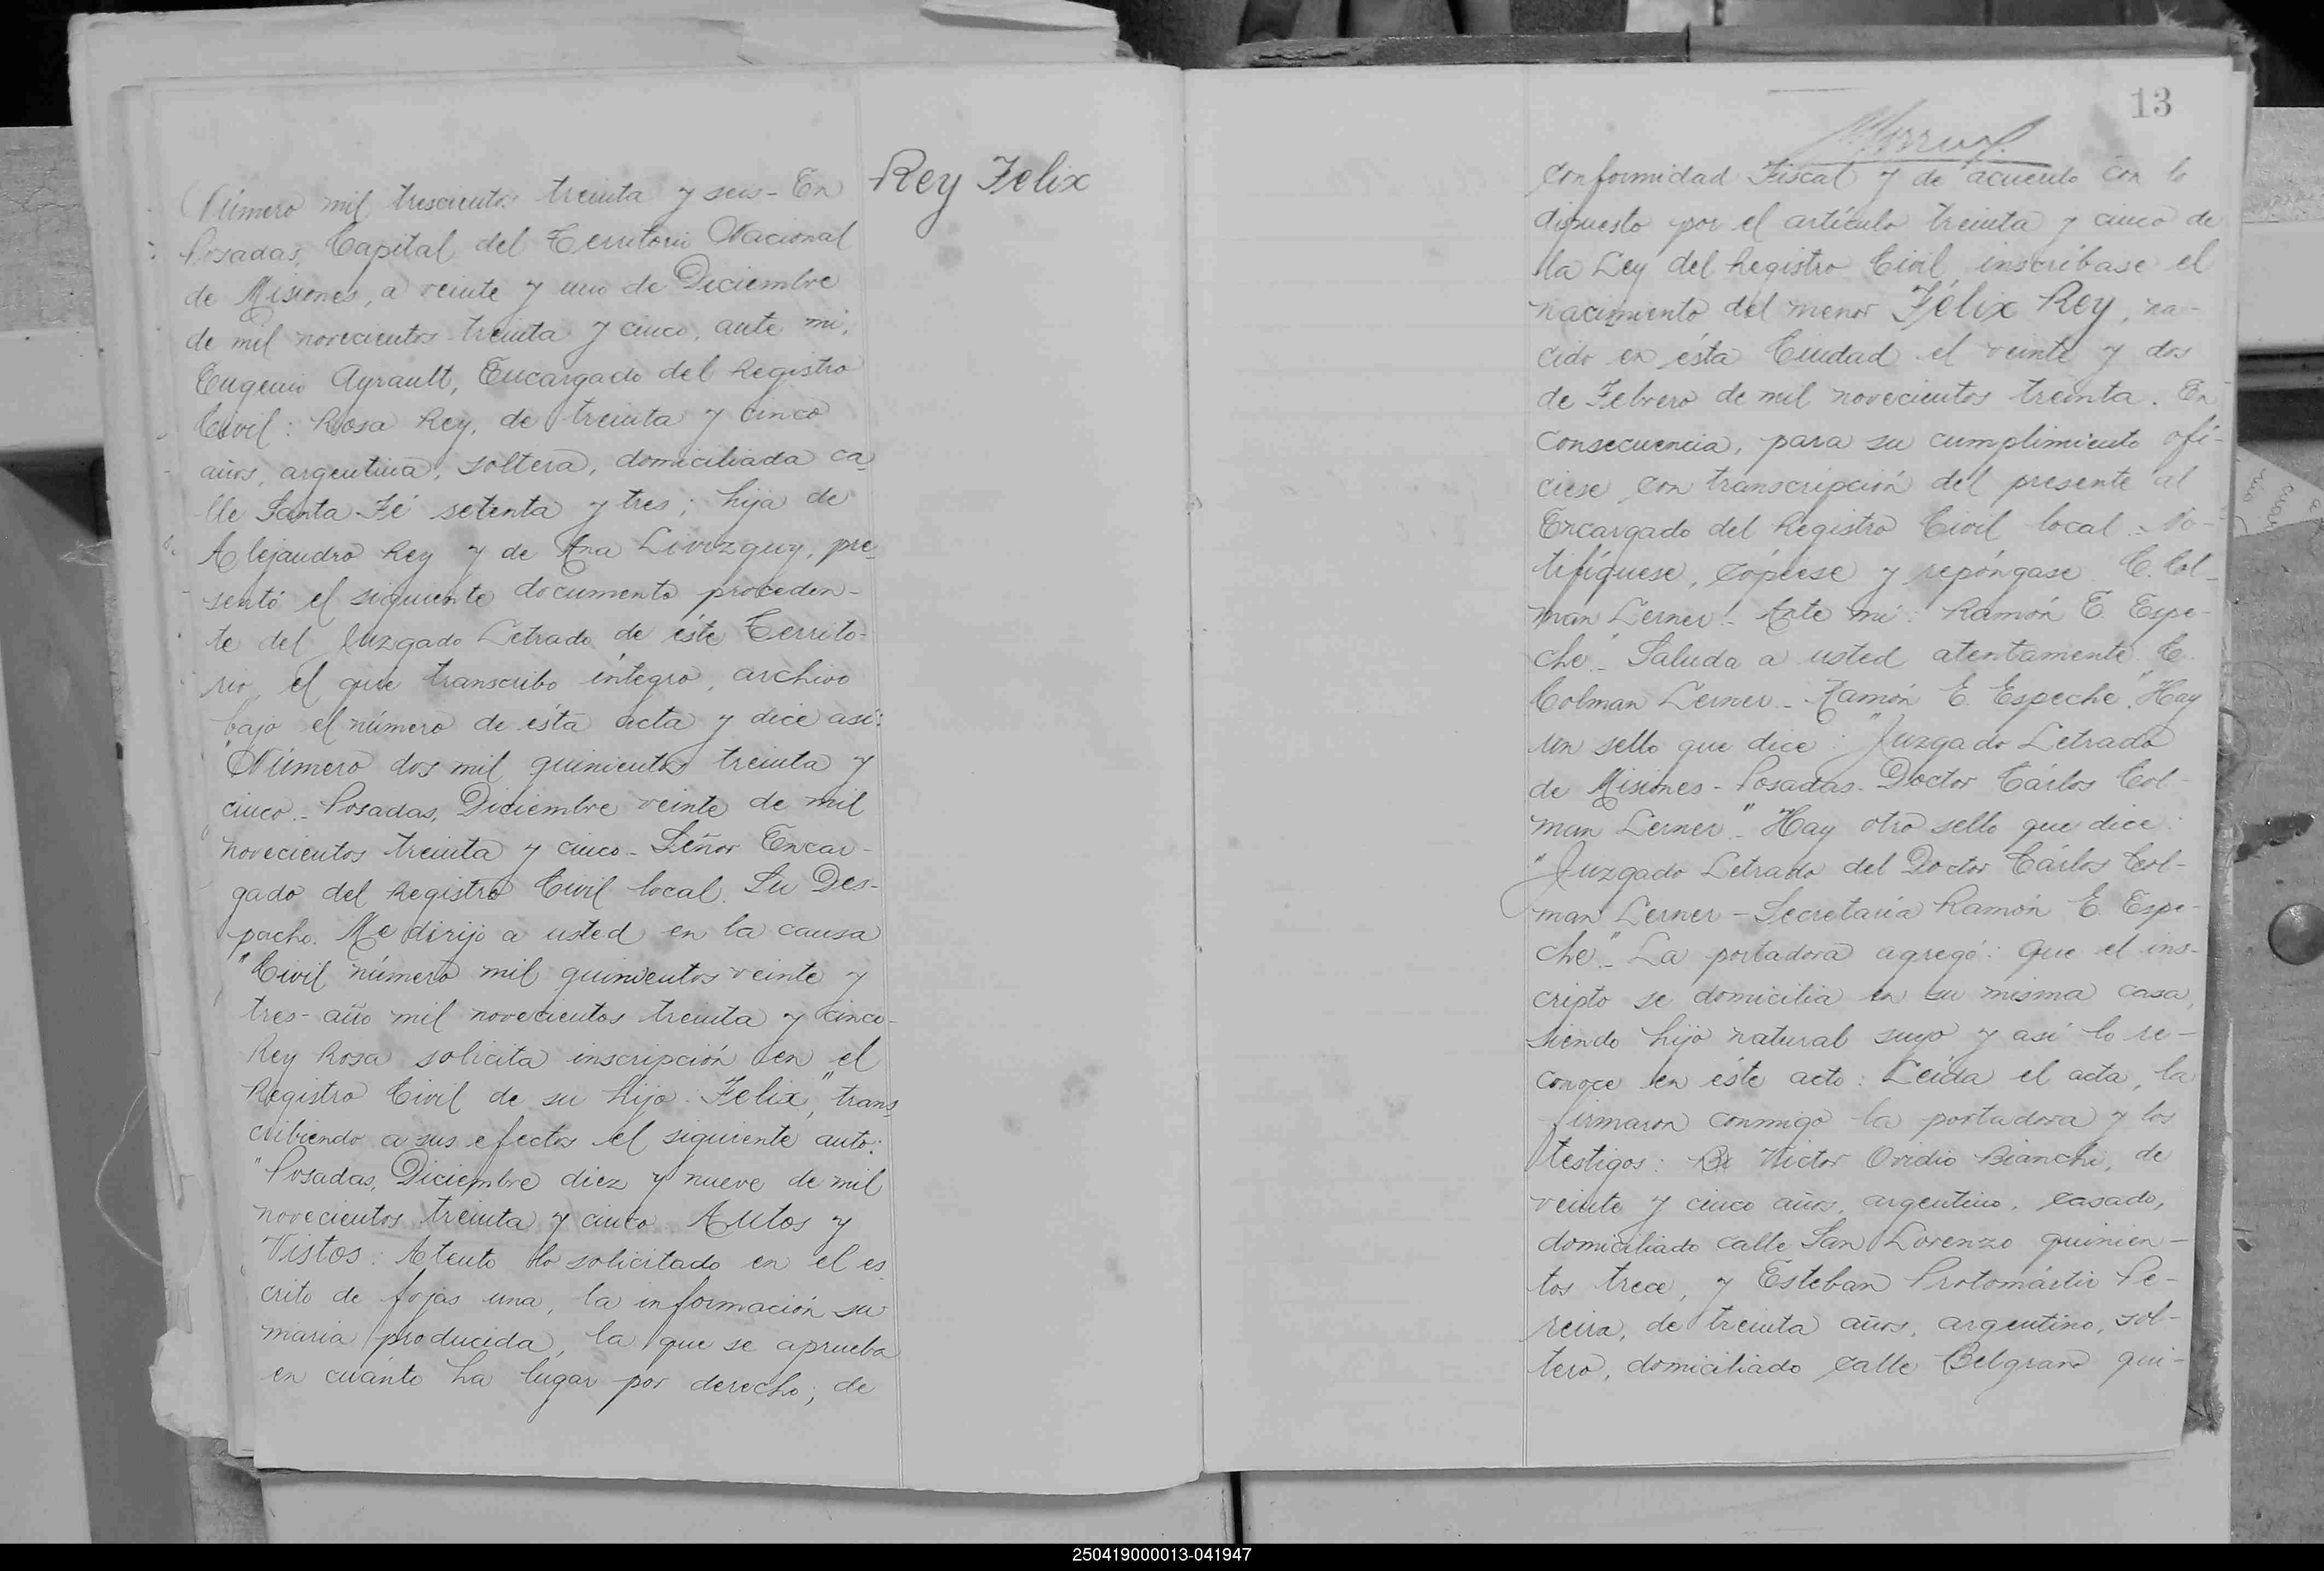 Número mil trescientos treinta y seis - En
Posadas, Capital del Territorio Nacional
de Misiones, a veinte y uno de Diciembre
de mil novecientos treinta y cinco, ante mi,
Eugenio Ayrault, Encargado del Registro
Civil: Rosa Rey, de treinta y cinco
años, argentina, soltera, domiciliada ca-
lle Santa Fé setenta y tres; hija de
Alejandro Rey y de Ana, pre-
sentó el siguiente documento proceden-
te del Juzgado Letrado de éste Territo-
rio, el que transcribo íntegro, archivo
bajo el número de ésta acta y dice así:
"Número dos mil quinientos treinta y
cinco.- Posadas, Diciembre veinte de mil
novecientos treinta y cinco - Señor Encar-
gado del Registro Civil local. Su Des-
pacho. Me dirijo a usted en la causa
"Civil número mil quinientos veinte y
tres - año mil novecientos treinta y cinco -
Rey Rosa solicita inscripción en el
Registro Civil de su hijo Felix", trans-
cribiendo a sus efectos el siguiente auto:
"Posadas, Diciembre diez y nueve de mil
novecientos treinta y cinco. Autos y
Vistos: Atento lo solicitado en el es-
crito de fojas una, la información su
maria producida, la que se aprueba
en cuánto ha lugar por derecho; de
Rey Felix
13
conformidad Fiscal y de acuerdo con lo
dispuesto por el artículo treinta y cinco de
la Ley del Registro Civil inscríbase el
nacimiento del menor Félix Rey, na-
cido en ésta Ciudad el veinte y dos
de Febrero de mil novecientos treinta. En
consecuencia, para su cumplimiento ofí-
ciese con transcripción del presente al
Encargado del Registro Civil local.- No-
tifíquese, cópiese y repóngase. C. Col-
man Lerner.- Ante mí: Ramón E. Espe-
che".- Saluda a usted atentamente. C.
Colman Lerner - Ramón E. Espeche". Hay
un sello que dice: "Juzgado Letrado
de Misiones - Posadas - Doctor Cárlos Col-
man Lerner".- Hay otro sello que dice:
"Juzgado Letrado del Doctor Cárlos Col-
man Lerner - Secretaría Ramón E. Espe-
che".- La portadora agregó: que el ins-
cripto se domicilia en su misma casa,
siendo hijo natural suyo y así lo re-
conoce en éste acto: Leída el acta, la
firmaron conmigo la portadora y los
testigos: Bi Victor Ovidio Bianchi, de
veinte y cinco años, argentino, casado,
domiciliado calle San Lorenzo quinien-
tos trece, y Esteban Protomártir Pe-
reira, de treinta años, argentino, sol-
tero, domiciliado calle Belgrano qui-
250419000013-041947